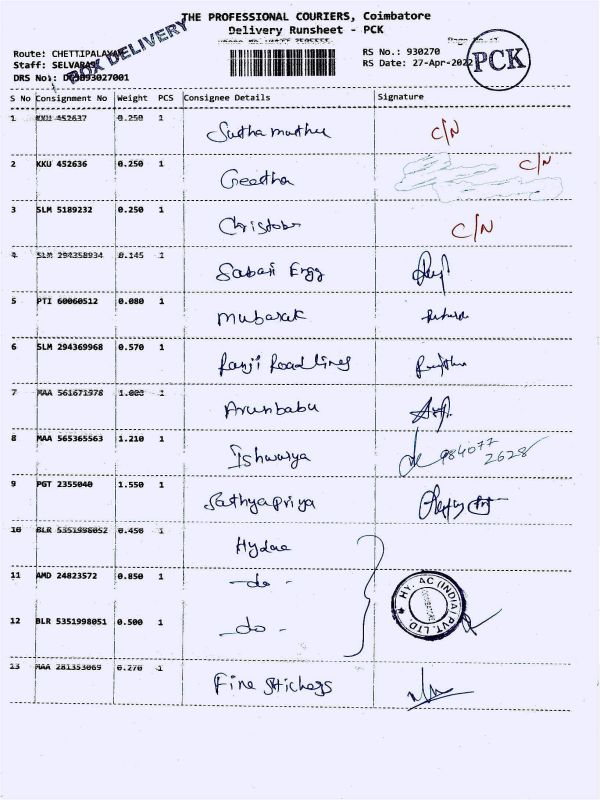 THE PROFESSIONAL COURIERS, Coimbatore
Delivery Runsheet - PCK
BOX DELIVERY
Route: CHETTIPALAYAM
RS No.: 930270
Staff: SELVARAJ
RS Date: 27-Apr-2022
PCK
DRS No:
S No Consignment No Weight PCS Consignee Details Signature
1 KKU 452637 0.250 1 Sutha muthu C/N
2 KKU 452636 0.250 1 Geetha C/N
3 SLM 5189232 0.250 1 Christober C/N
4 SLM 294358934 0.145 1 Sabari Engg
5 PTI 60060512 0.080 1 Mubarak
6 SLM 294369968 0.570 1 Ranji Roadlines
7 MAA 561671978 1.000 1 Arunbabu
8 MAA 565365563 1.210 1 Ishwarya 984077
2628
9 PGT 2355040 1.550 1 Sathyapriya
10 BLR 5351998052 0.450 1 Hydac
11 AMD 24823572 0.850 1 -do-
HY. AC (INDIA) PVT. LTD.
12 BLR 5351998051 0.500 1 -do-
13 MAA 281353069 0.270 1 Fine Stichers